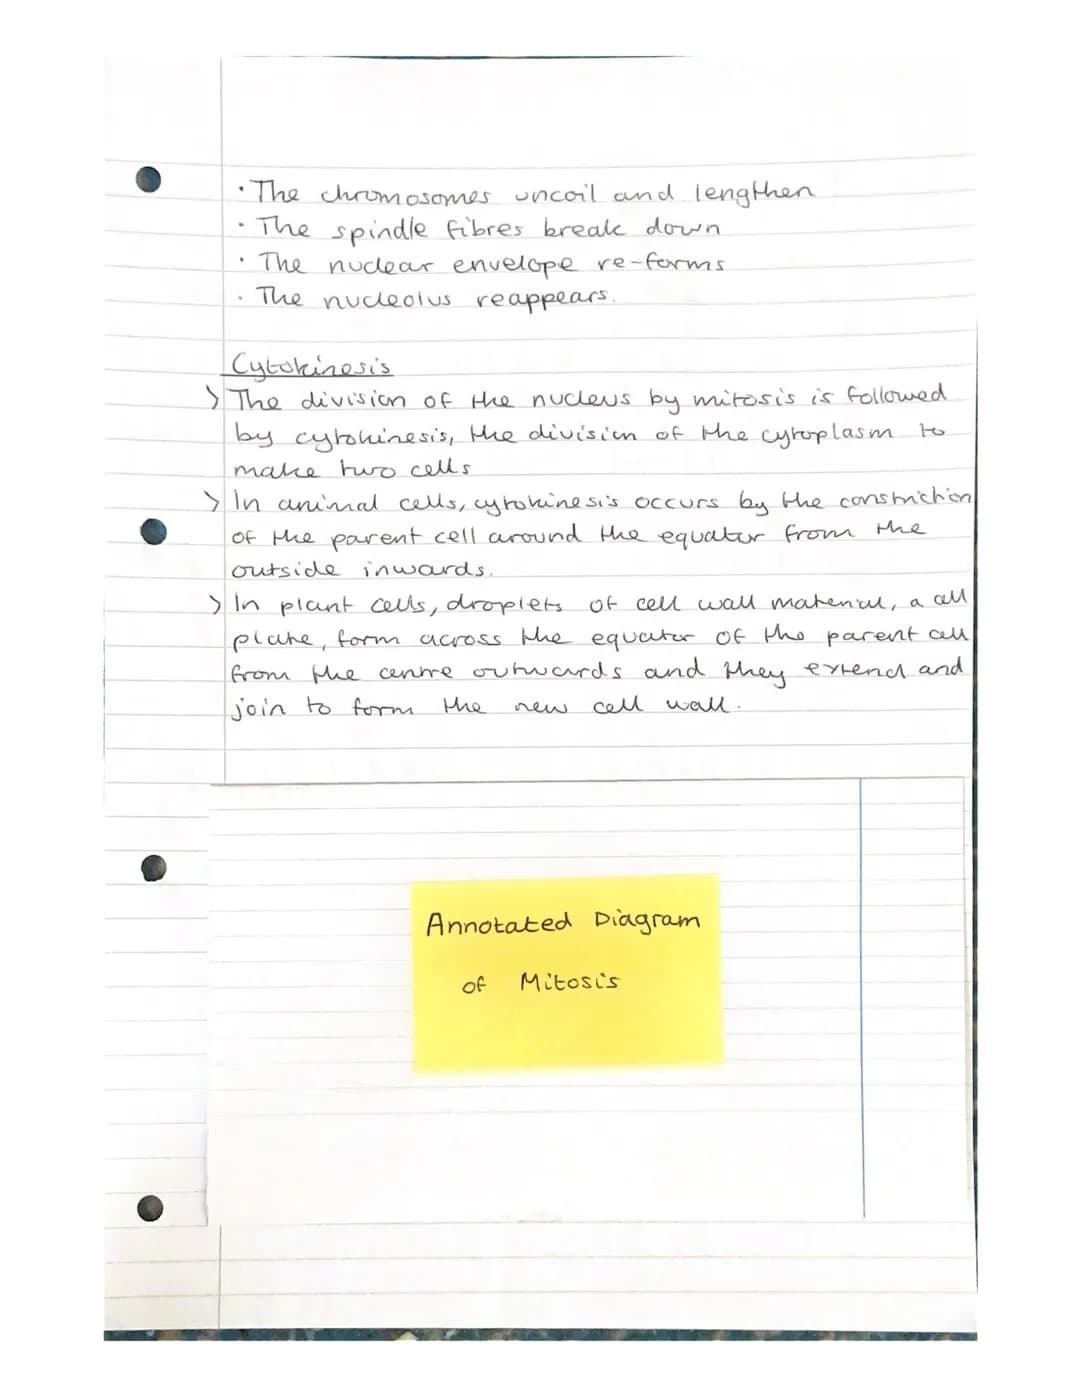 · The chromosomes uncoil and lengthen
· The spindle fibres break down
· The nuclear envelope re-forms
· The nucleolus reappears.
Cytokinesis
> The division of the nucleus by mitosis is followed
by cytokinesis, the division of the cytoplasm to
make two cells
> In animal cells, cytokinesis occurs by the constriction
of the parent cell around the equator from the
outside inwards.
> In plant cells, droplets of cell wall material, a cell
plate, form across the equator of the parent cell
from the centre outwards and they extend and
join to form the new cell wall.
Annotated Diagram
of Mitosis